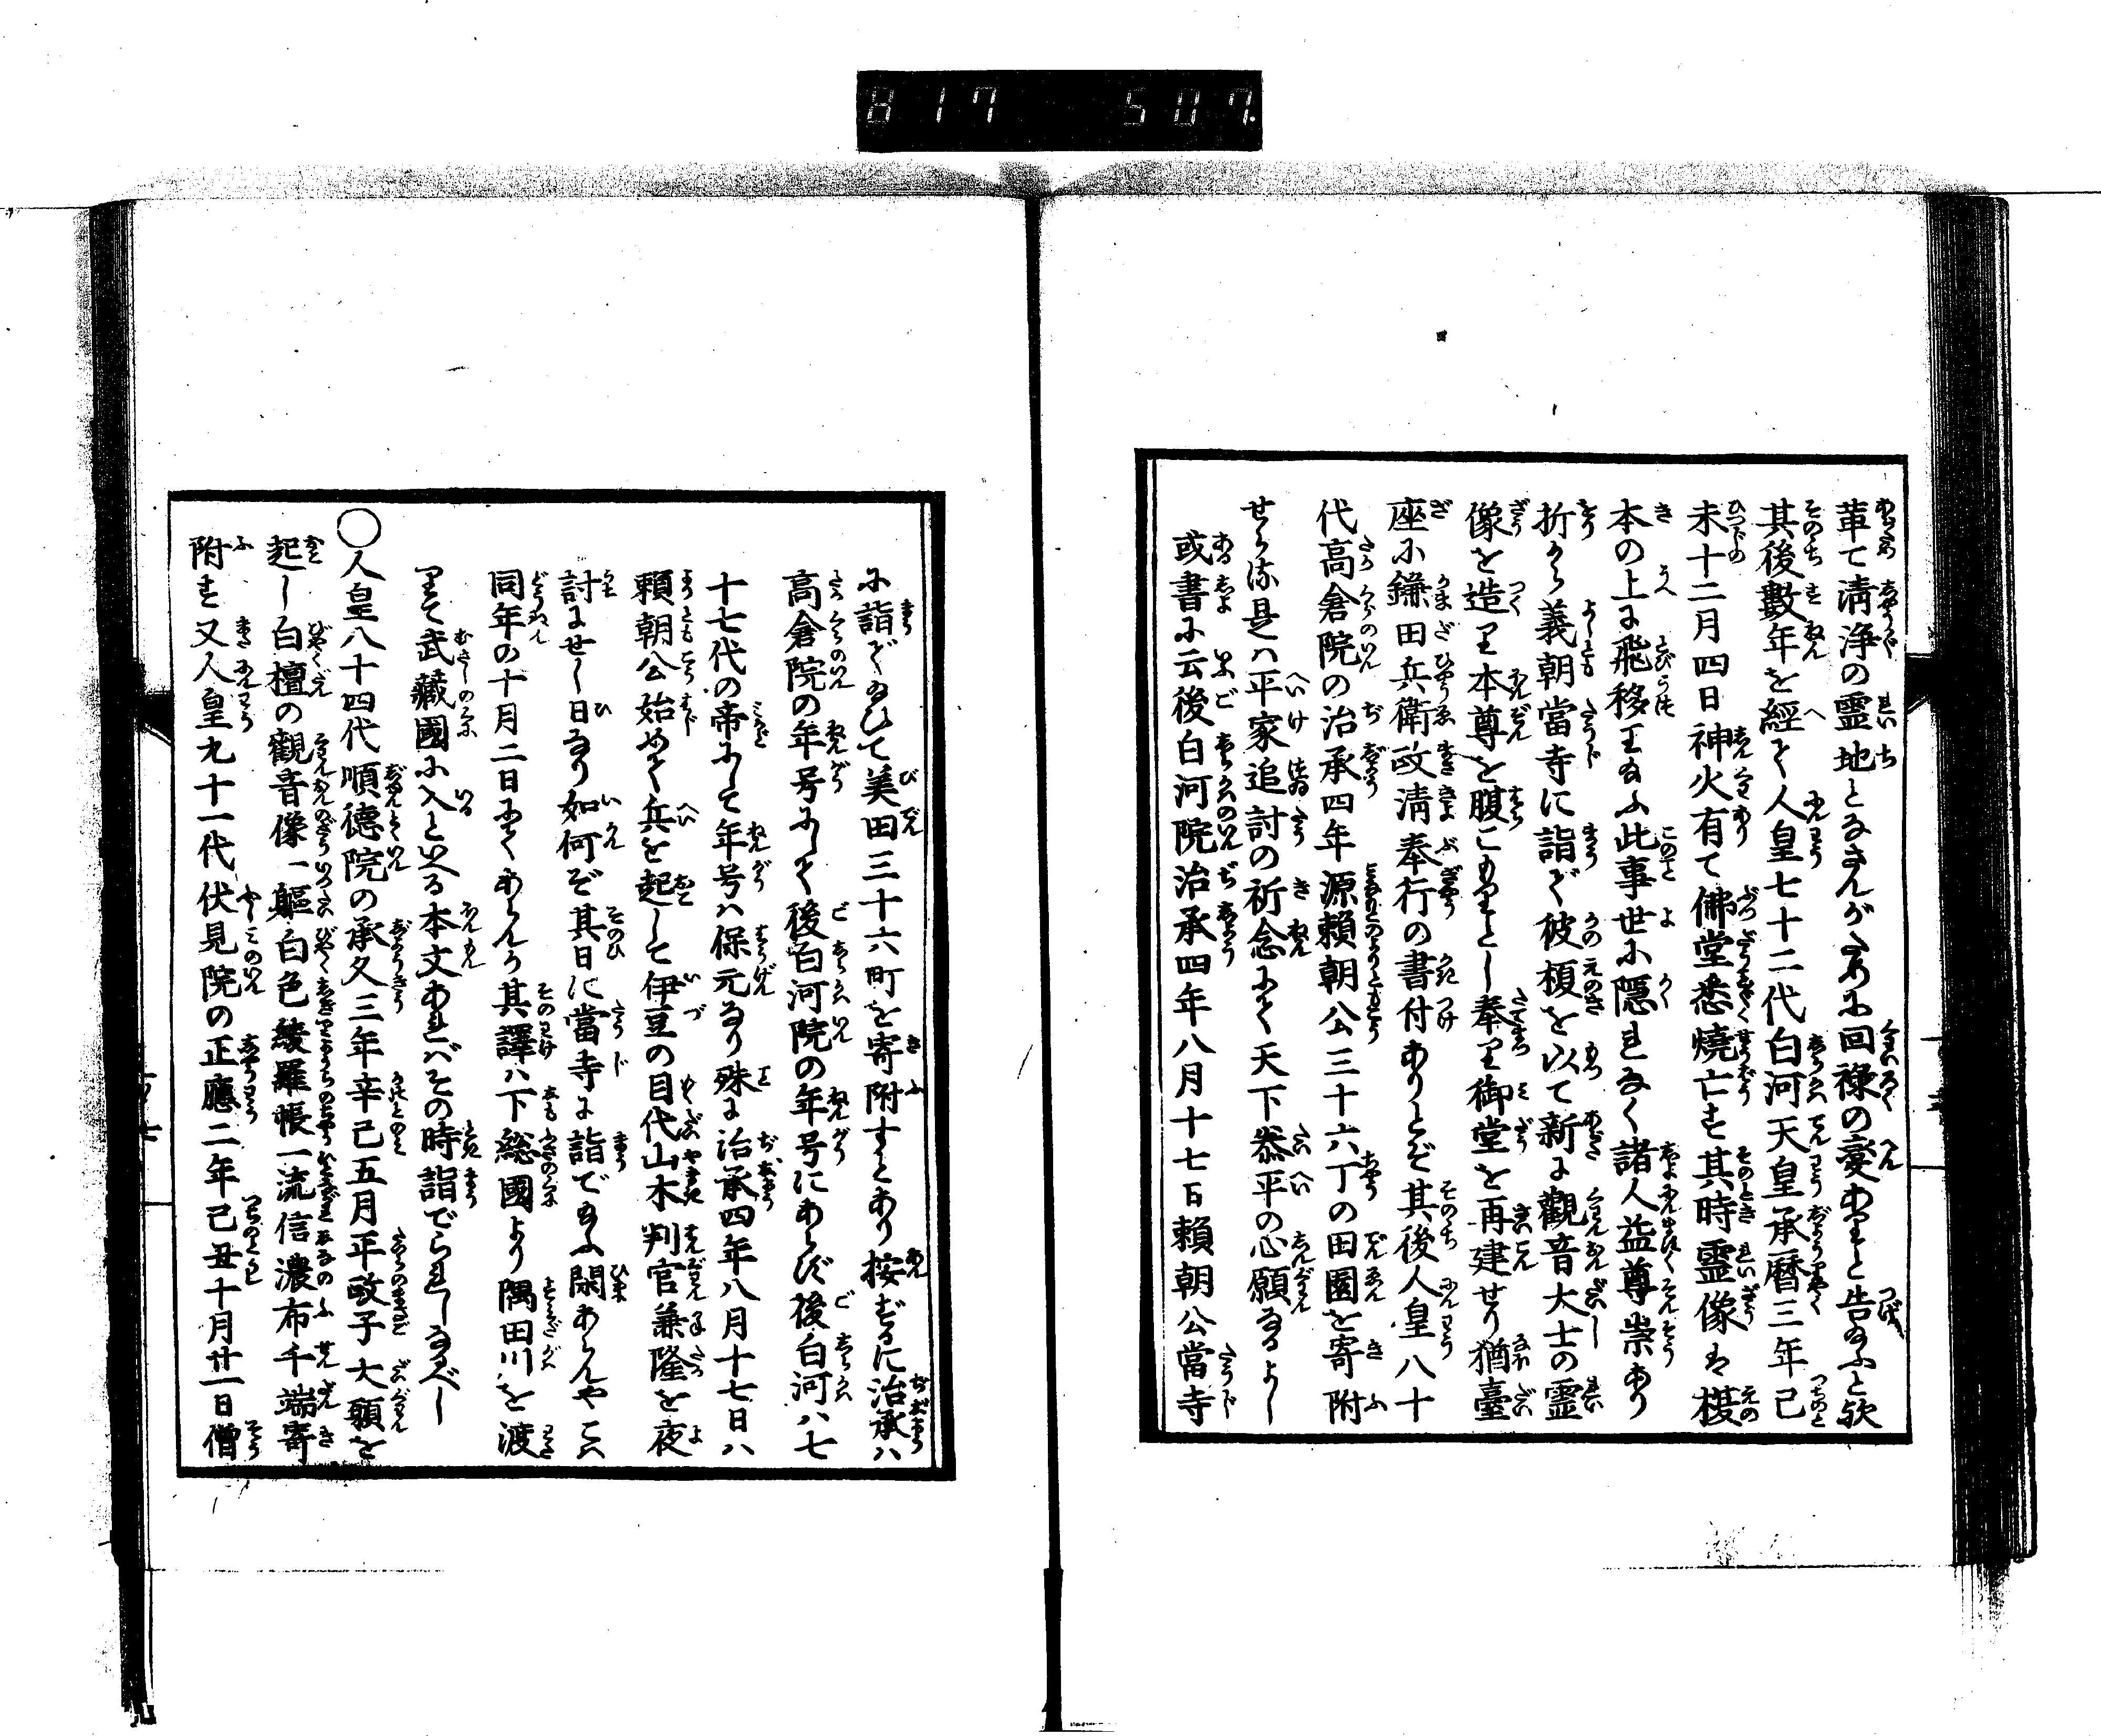 817 507.
革て清浄の霊地となさんがために回禄の憂ありと告給ふと欤
其後數年を經て人皇七十二代白河天皇承暦三年己
未十二月四日神火有て佛堂悉燒亡す其時霊像は榎
本の上に飛移り給ふ此事世に隠れなく諸人益尊崇あり
折から義朝當寺に詣で彼榎を以て新に觀音大士の霊
像を造り本尊を腹ごもりとし奉り御堂を再建せり猶臺
座に鎌田兵衛政清奉行の書付ありとぞ其後人皇八十
代高倉院の治承四年源頼朝公三十六丁の田園を寄附
せらる是ハ平家追討の祈念にて天下泰平の心願なるよし
或書に云後白河院治承四年八月十七日頼朝公當寺
に詣で給ひて美田三十六町を寄附すとあり按ずるに治承ハ
高倉院の年号にして後白河院の年号にあらず後白河ハ七
十七代の帝にして年号ハ保元なり殊に治承四年八月十七日ハ
頼朝公始めて兵を起して伊豆の目代山木判官兼隆を夜
討にせし日なり如何ぞ其日に當寺に詣で給ふ閑あらんやこハ
同年の十月二日にてあらんか其譯ハ下総國より隅田川を渡
りて武藏國に入といへる本文あれバその時詣でられしなるべし
〇人皇八十四代順徳院の承久三年辛己五月平政子大願を
起し白檀の觀音像一軀白色綾羅帳一流信濃布千端寄
附す又人皇九十一代伏見院の正應二年己丑十月廿一日僧